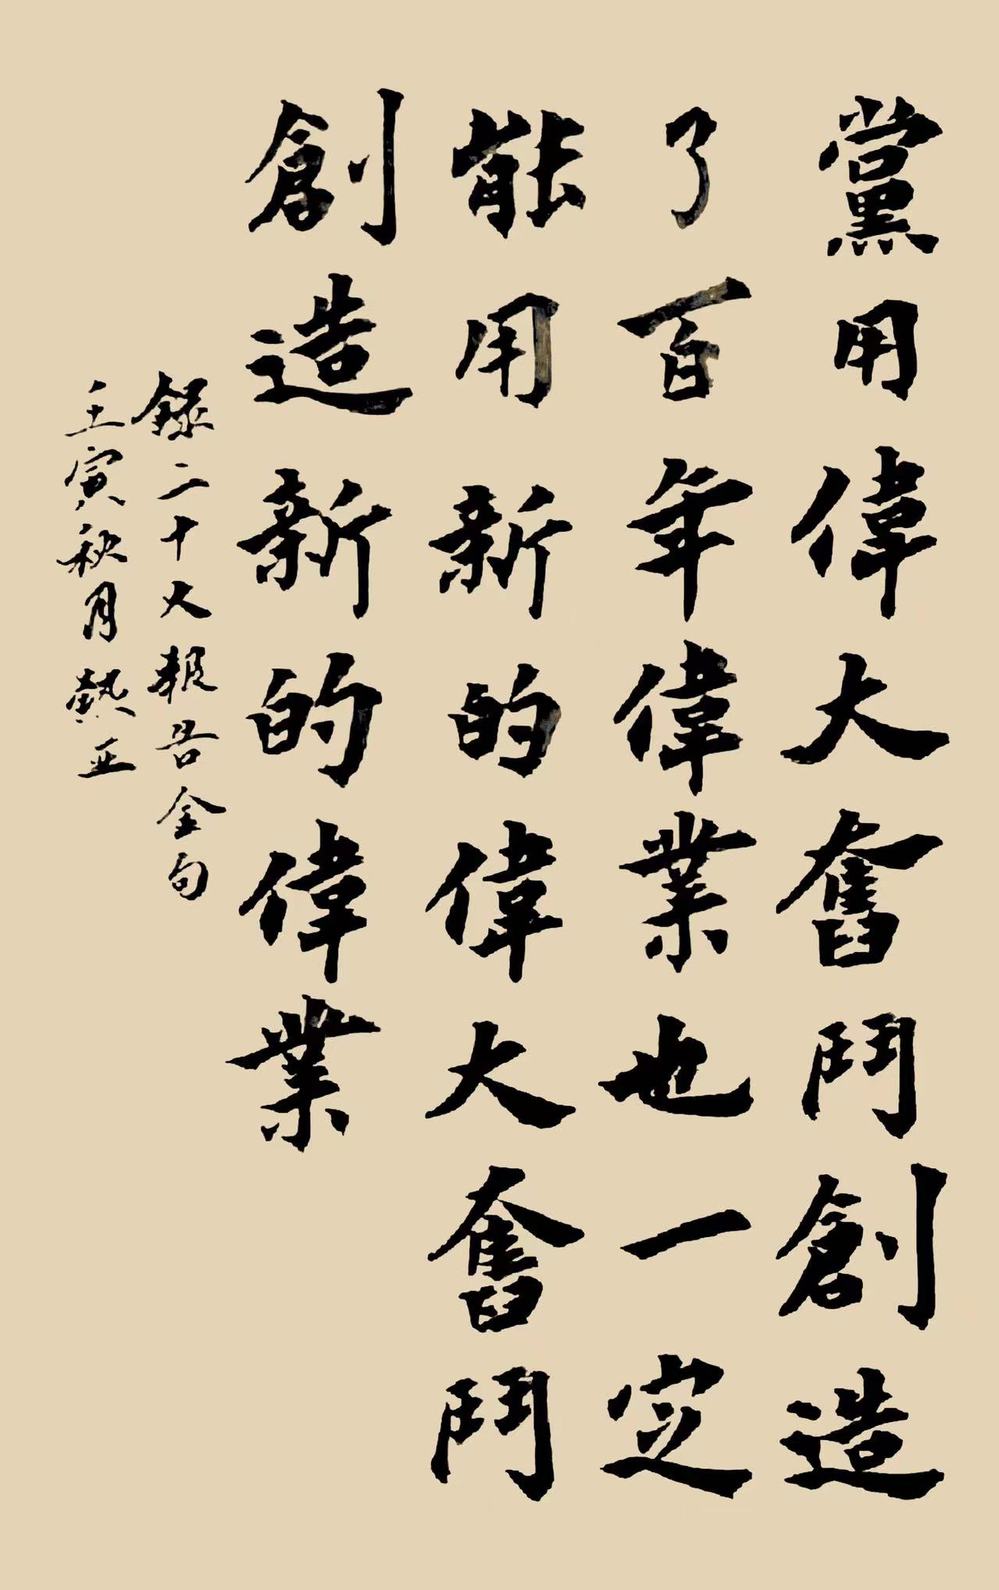 黨用偉大奮鬥創造
了百年偉業也一定
能用新的偉大奮鬥
創造新的偉業
錄二十大報告金句
壬寅秋月熱亚